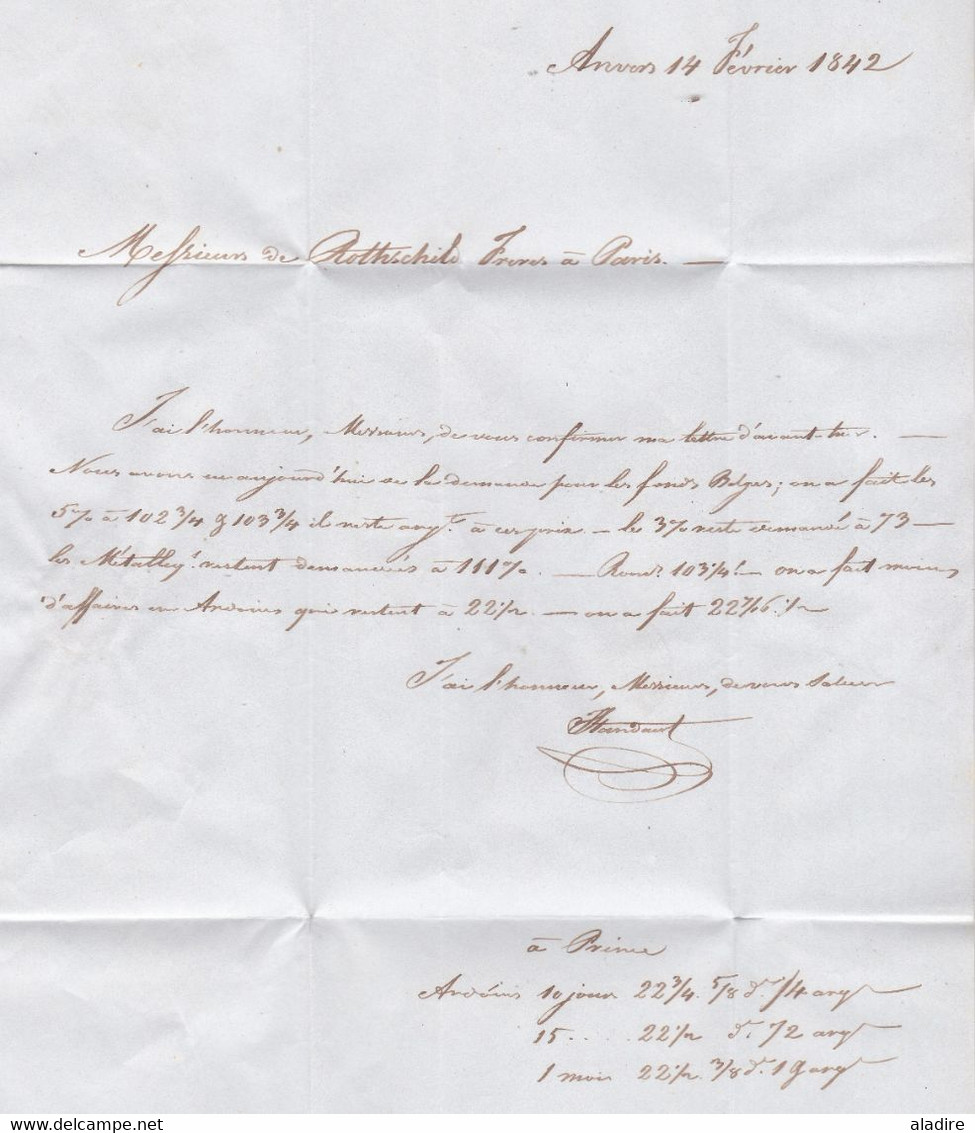 Anvers 14 Février 1842
Messieurs de Rothschild Freres à Paris. —
J'ai l'honneur, Messieurs, de vous confirmer ma lettre d'avant-hier. —
Nous avons eu aujourd'hui de la demande pour les fonds Belges; on a fait les
5% à 102 3/4 & 103 3/4 il reste argt à ces prix — le 3% reste demandé à 73 —
les Métalliq. restent demandées à 111%. — Romns 103 1/4 — on a fait moins
d'affaires en Ardoins qui restent à 22 1/2 — on a fait 22 7/16. 1/2
J'ai l'honneur, Messieurs, de vous saluer
à Prime
Ardoins 10 jours 22 3/4. 5/8 dt 1/4 argt
15 .... 22 1/2 dt 1/2 argt
1 mois 22 1/2. 3/8 dt 1 argt
aladire